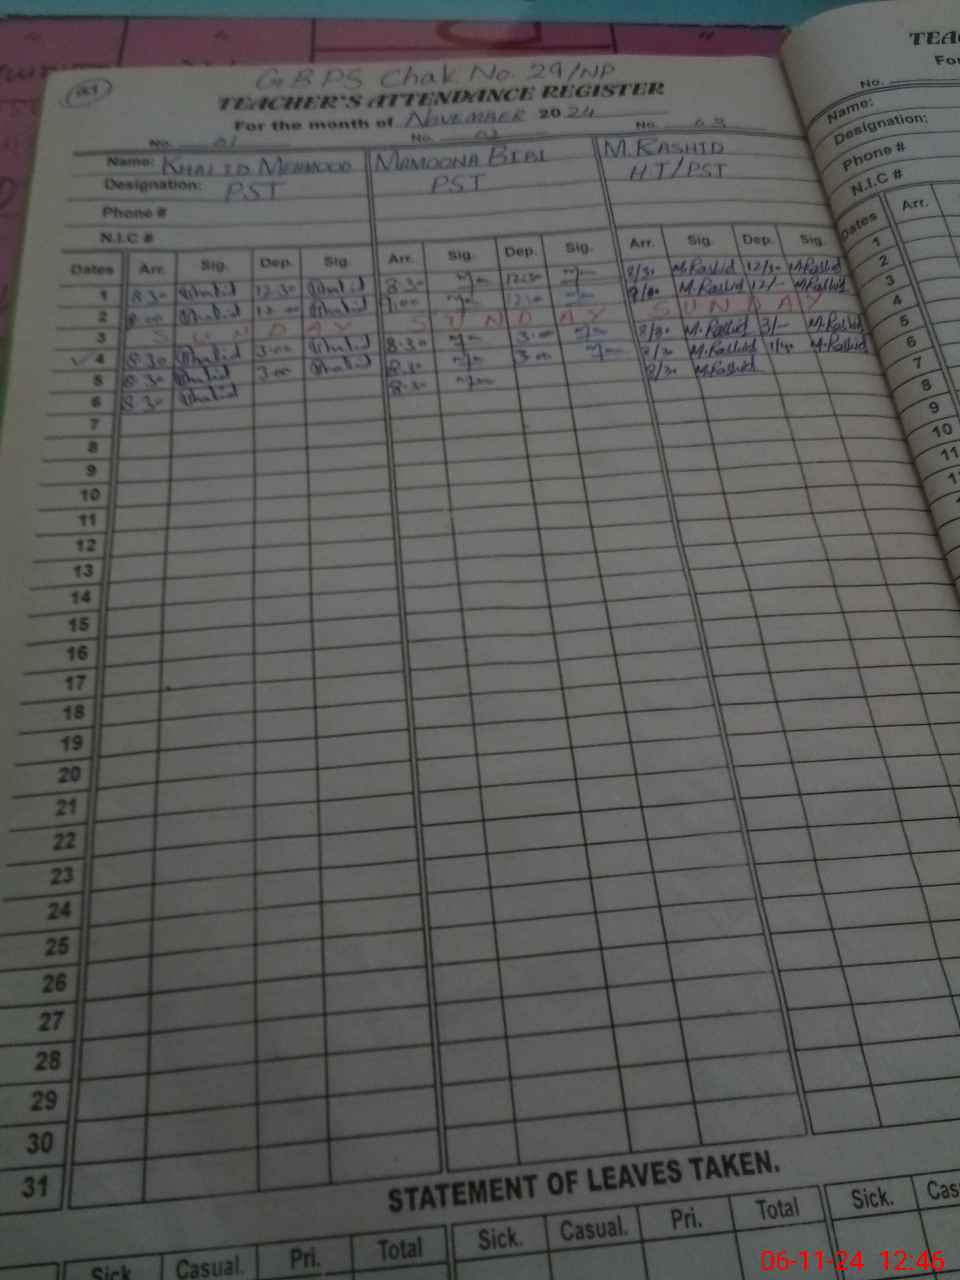 GBPS Chak No. 29/NP
TEACHER'S ATTENDANCE REGISTER
For the month of NOVEMBER 2024
No. 01 No. 02 No. 03
Name: KHALID MEHMOOD MAMOONA BIBI M. RASHID
Designation: PST PST HT/PST
Phone #
N.I.C #
Dates Arr. Sig. Dep. Sig. Arr. Sig. Dep. Sig. Arr. Sig. Dep. Sig.
1 8:30 Khalid 12:30 Khalid 8:30 12:30 8/30 M.Rashid 12/30 M.Rashid
2 8:00 Khalid 12:00 Khalid 12:00 M.Rashid 12/- M.Rashid
3 SUNDAY SUNDAY SUNDAY
4 8:30 Khalid 3:00 Khalid 8:30 3:00 8/30 M.Rashid 3/- M.Rashid
5 8:30 Khalid 3:00 Khalid 8:30 3:00 8/30 M.Rashid M.Rashid
6 8:30 Khalid 8:30 8/30 M.Rashid
7
8
9
10
11
12
13
14
15
16
17
18
19
20
21
22
23
24
25
26
27
28
29
30
31
STATEMENT OF LEAVES TAKEN.
Sick. Casual. Pri. Total Sick. Casual. Pri. Total Sick. Cas
TEA
For
No.
Name:
Designation:
Phone #
N.I.C #
Dates Arr.
1
2
3
4
5
6
7
8
9
10
11
06-11-24 12:46